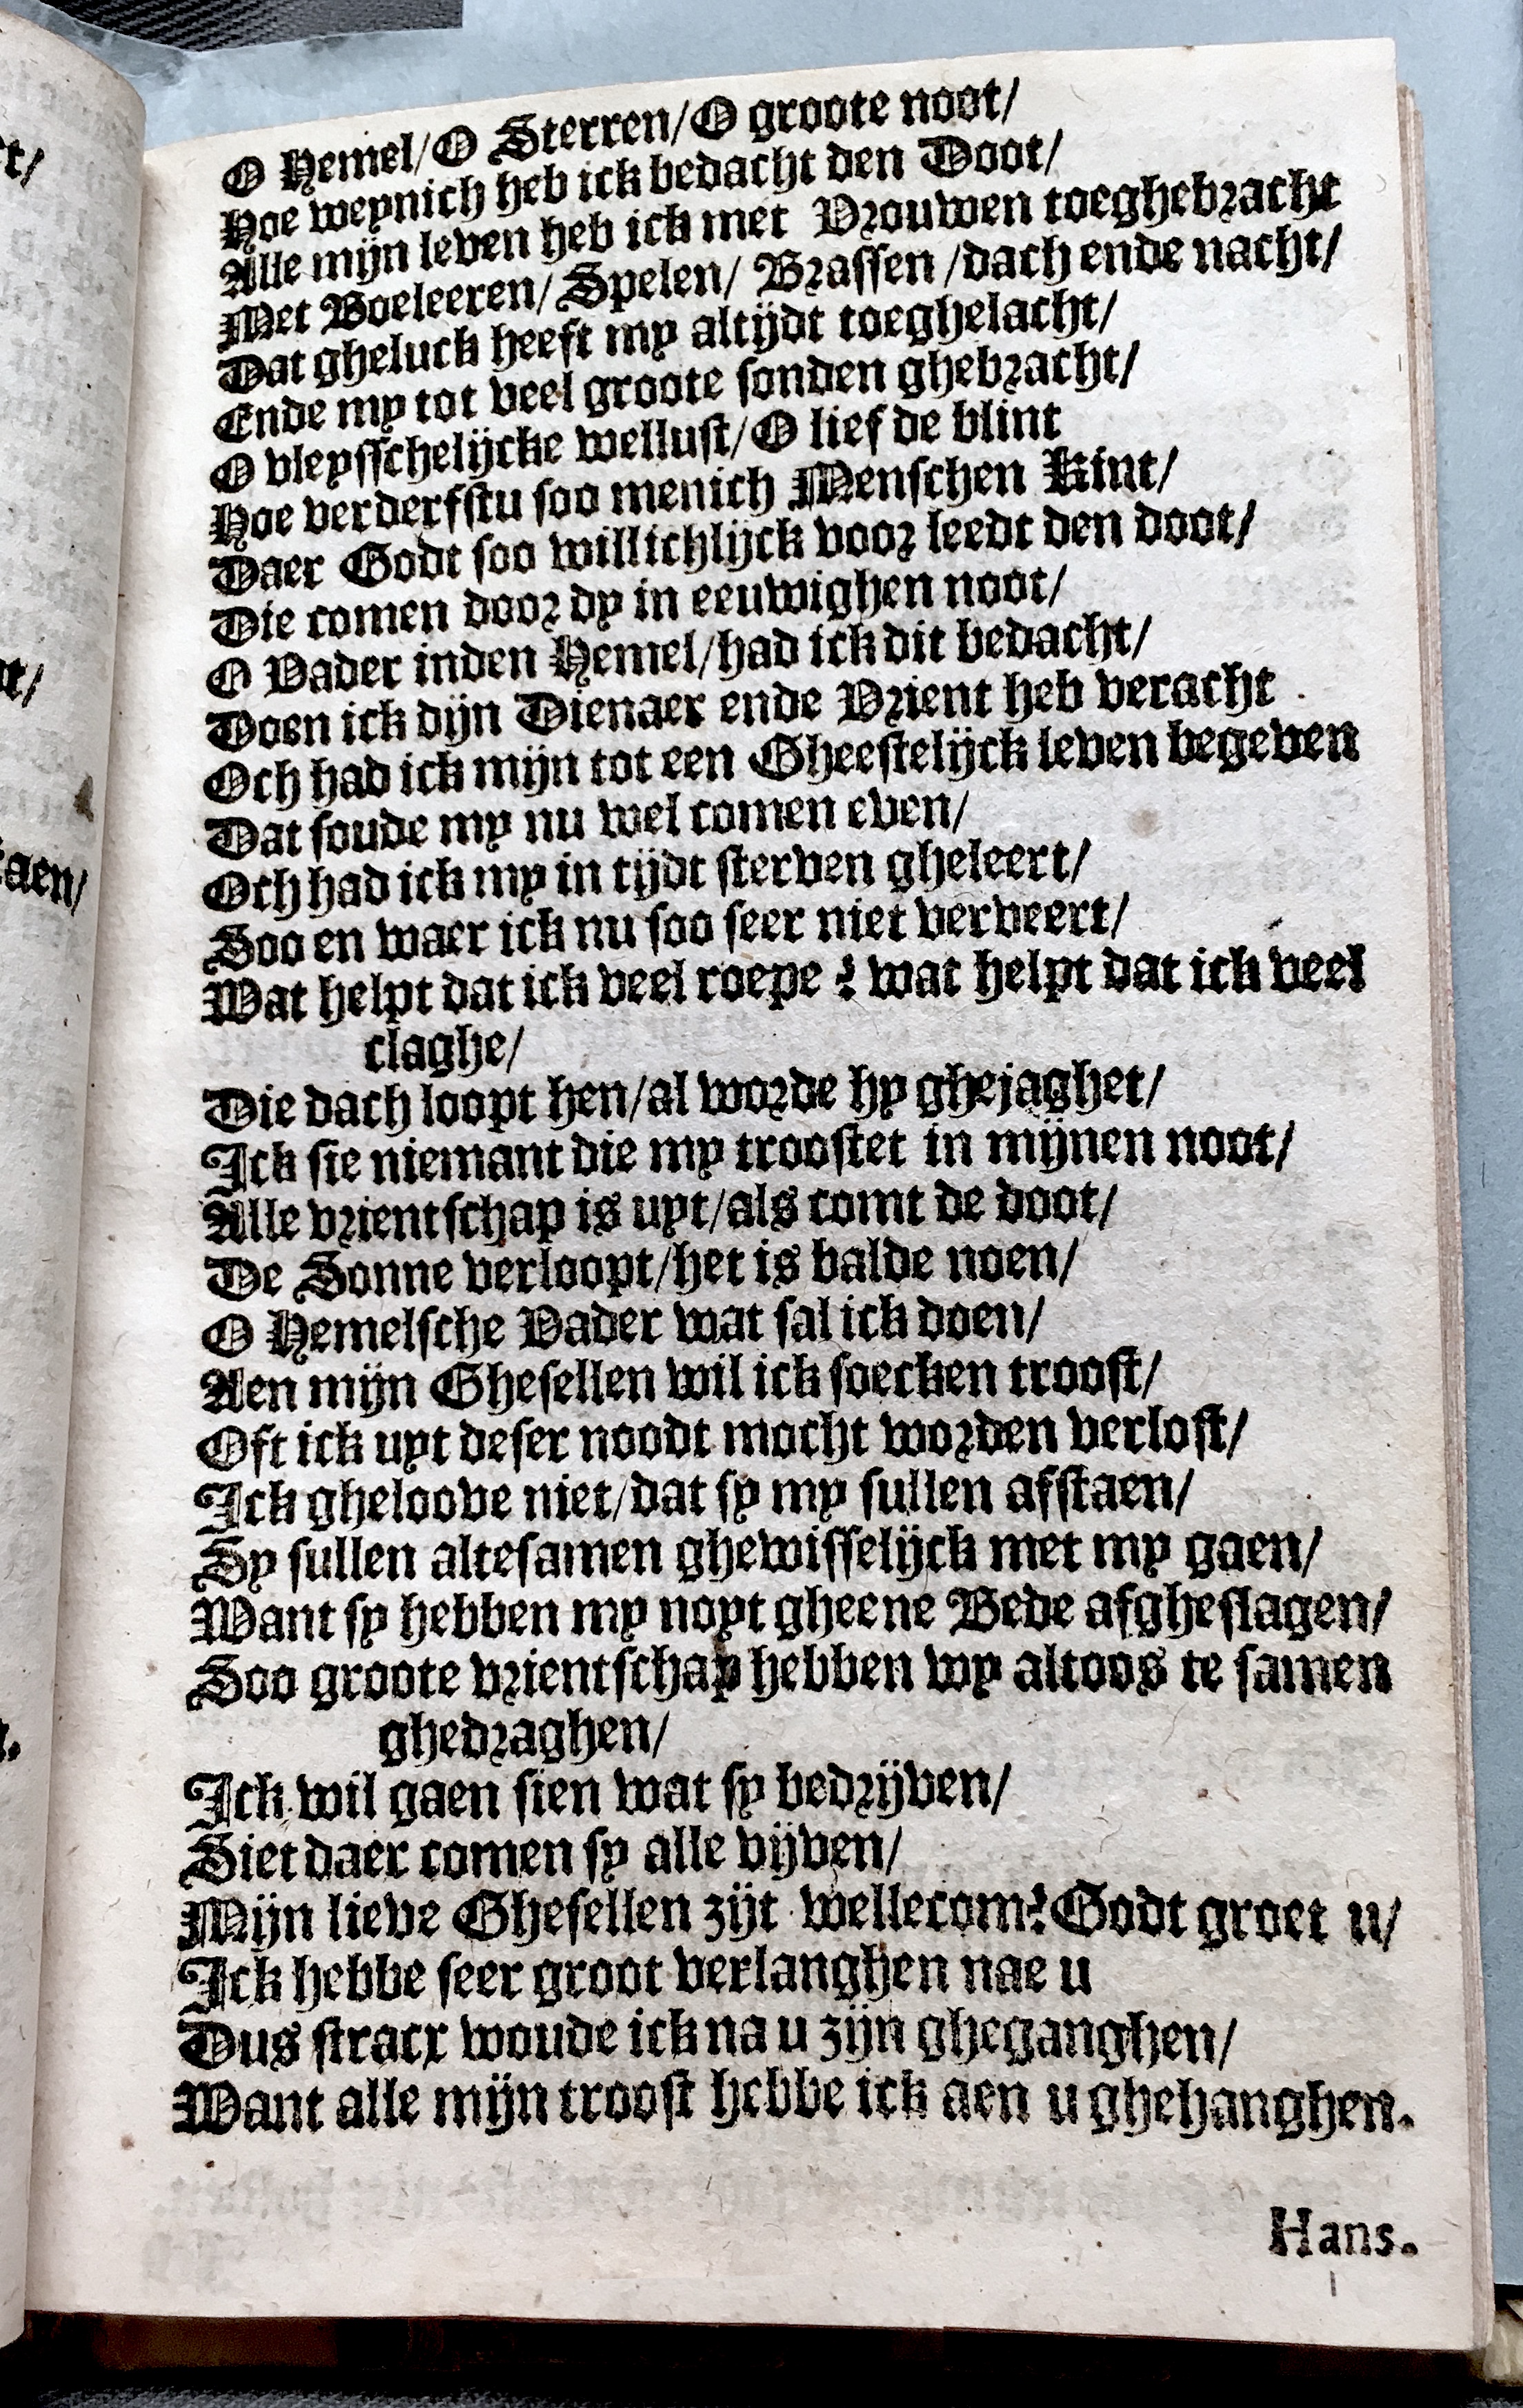 O Hemel/O Sterren/O groote noot/
Hoe weynich heb ick bedacht den Doot/
Alle mijn leven heb ick met Vrouwen toeghebracht
Met Boeleeren/Spelen/ Brassen /dach ende nacht/
Dat gheluck heeft my altijdt toeghelacht/
Ende my tot veel groote sonden ghebracht/
O vleysschelijcke wellust/O lief de blint
Hoe verderfstu soo menich Menschen Kint/
Daer Godt soo willichlijck voor leedt den doot/
Die comen door dy in eeuwighen noot/
O Vader inden Hemel/had ick dit bedacht/
Doen ick dijn Dienaer ende Vrient heb veracht
Och had ick mijn tot een Gheestelijck leven begeven
Dat soude my nu wel comen even/
Och had ick my in tijdt sterven gheleert/
Soo en waer ick nu soo seer niet verveert/
Wat helpt dat ick veel roepe ? wat helpt dat ick veel
claghe/
Die dach loopt hen/al worde hy ghejaghet/
Ick sie niemant die my troostet in mijnen noot/
Alle vrientschap is uyt/als comt de doot/
De Sonne verloopt/het is balde noen/
O Hemelsche Vader wat sal ick doen/
Aen mijn Ghesellen wil ick soecken troost/
Oft ick uyt deser noodt mocht worden verlost/
Ick gheloove niet/dat sy my sullen afstaen/
Sy sullen altesamen ghewisselijck met my gaen/
Want sy hebben my noyt gheene Bede afgheslagen/
Soo groote vrientschap hebben wy altoos te samen
ghedraghen/
Ick wil gaen sien wat sy bedrijven/
Siet daer comen sy alle vijven/
Mijn lieve Ghesellen zijt wellecom? Godt groet u/
Ick hebbe seer groot verlanghen nae u
Dus stracx woude ick na u zijn gheganghen/
Want alle mijn troost hebbe ick aen u ghehanghen.
Hans.